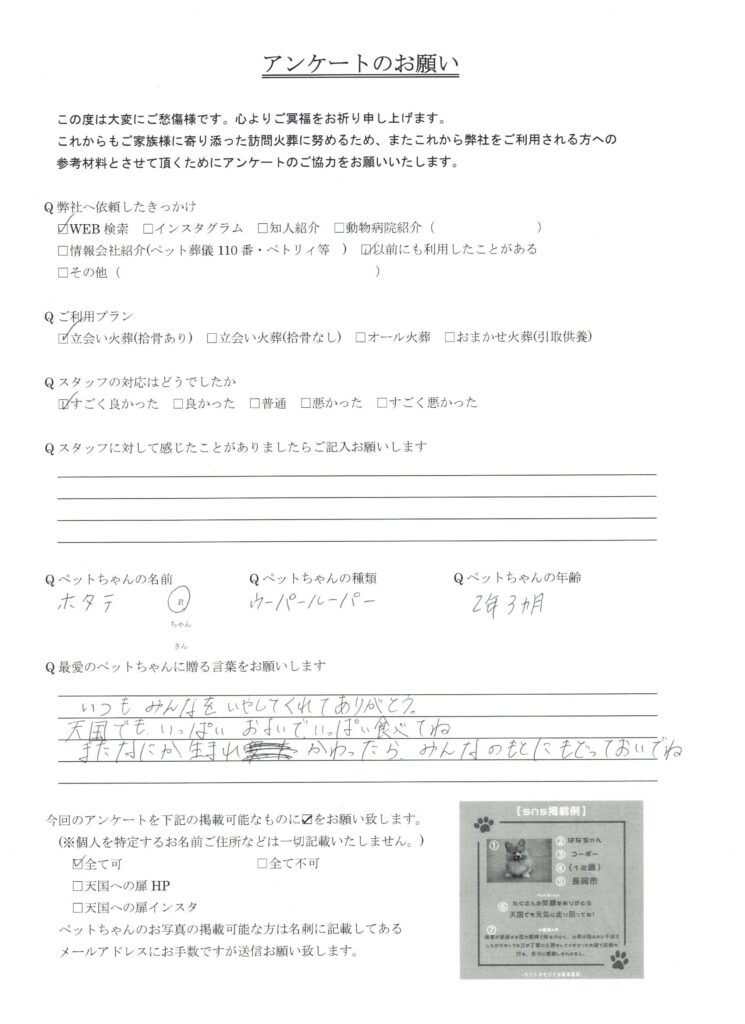 アンケートのお願い
この度は大変にご愁傷様です。心よりご冥福をお祈り申し上げます。
これからもご家族様に寄り添った訪問火葬に努めるため、またこれから弊社をご利用される方への
参考材料とさせて頂くためにアンケートのご協力をお願いいたします。
Q 弊社へ依頼したきっかけ
☑WEB 検索 □インスタグラム □知人紹介 □動物病院紹介（ ）
□情報会社紹介(ペット葬儀 110 番・ペトリィ等 ) ☑以前にも利用したことがある
□その他（ ）
Q ご利用プラン
☑立会い火葬(拾骨あり) □立会い火葬(拾骨なし) □オール火葬 □おまかせ火葬(引取供養)
Q スタッフの対応はどうでしたか
☑すごく良かった □良かった □普通 □悪かった □すごく悪かった
Q スタッフに対して感じたことがありましたらご記入お願いします
Q ペットちゃんの名前 Q ペットちゃんの種類 Q ペットちゃんの年齢
ホタテ 君 ウーパールーパー 2年3カ月
ちゃん
さん
Q 最愛のペットちゃんに贈る言葉をお願いします
いつも みんなを いやしてくれてありがとう。
天国でも、いっぱい およいで いっぱい 食べてね
またなにか生まれ かわったら、みんなのもとにもどっておいでね
今回のアンケートを下記の掲載可能なものに☑をお願い致します。
(※個人を特定するお名前ご住所などは一切記載いたしません。)
☑全て可 □全て不可
□天国への扉 HP
□天国への扉インスタ
ペットちゃんのお写真の掲載可能な方は名刺に記載してある
メールアドレスにお手数ですが送信お願い致します。
【sns掲載例】
① ② はなちゃん
③ コーギー
④ (12歳)
⑤ 長岡市
⑥ たくさんの笑顔をありがとう
天国でも元気に走り回ってね!
⑦